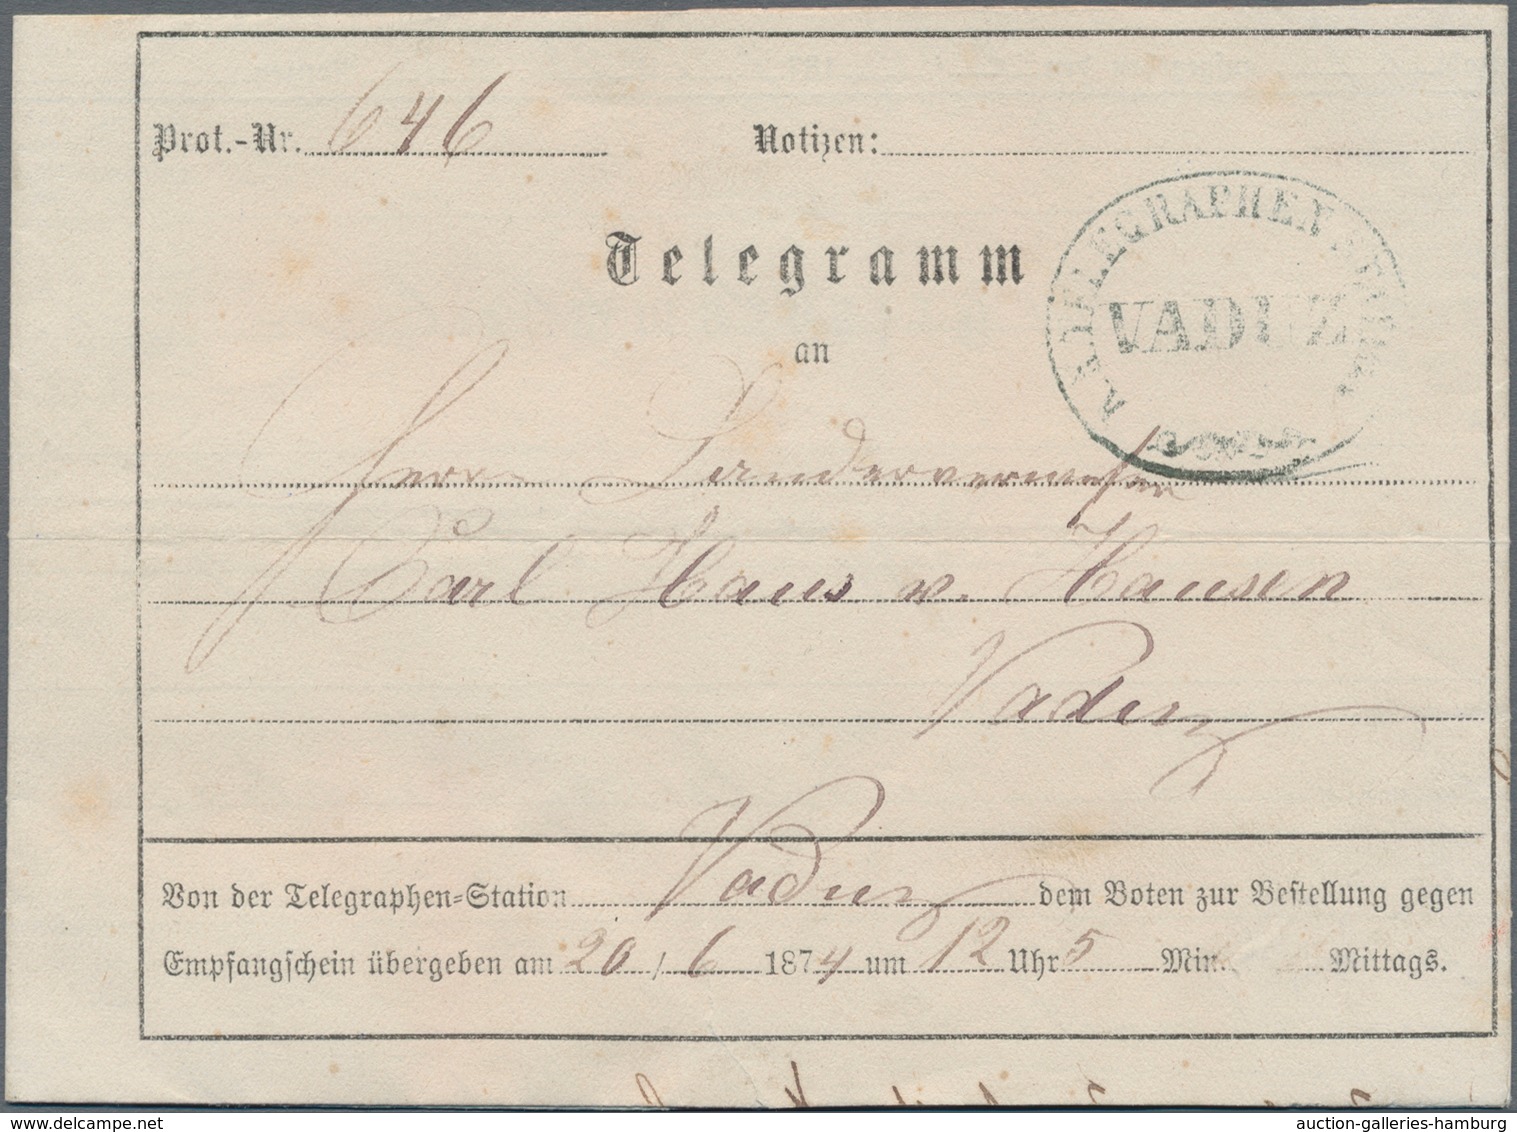 Prot.-Nr. 646 Notizen:
K. K. TELEGRAPHEN STATION
VADUZ
Telegramm
an
Herrn Landesverweser
Carl Haus v. Hausen
Vaduz
Von der Telegraphen-Station Vaduz dem Boten zur Bestellung gegen
Empfangschein übergeben am 20/6 1874 um 12 Uhr 5 Min. Mittags.
auction-galleries-hamburg